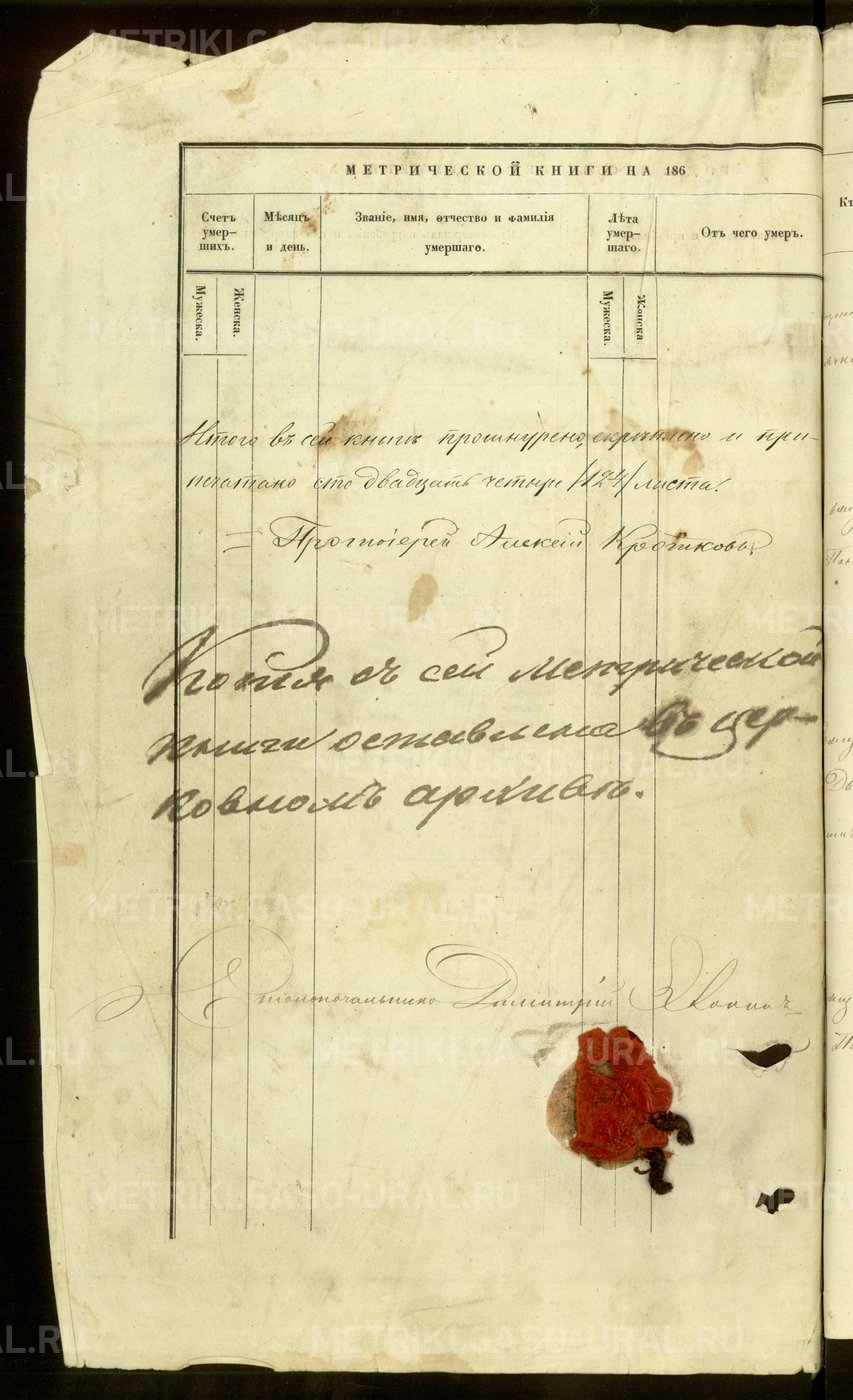 METRIKI.GASO-URAL.RU
МЕТРИЧЕСКОЙ КНИГИ НА 186
Счетъ умер-шихъ.
Мѣсяцъ и день.
Званіе, имя, отчество и фамилія умершаго.
Лѣта умер-шаго.
Отъ чего умеръ.
Мужеска.
Женска.
Мужеска.
Женска
Итого въ сей книгѣ прошнурено, скрѣплено и при-
печатано сто двадцать четыре /124/ листа.
= Протоіерей Алексій Кротковъ.
Копія съ сей метрической
книги оставлена въ цер-
ковномъ архивѣ.
Столоначальникъ Димитрій